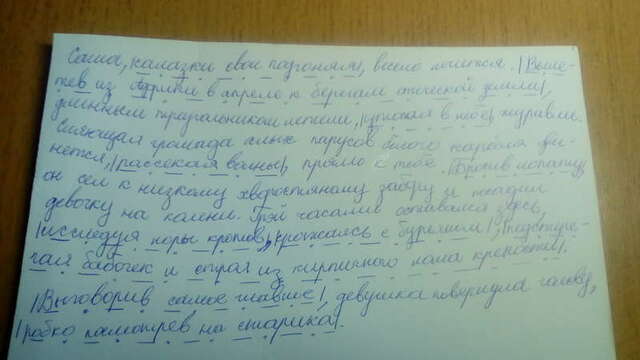 Саша, салазки свои разгоняя, весело мчится. Выле-
тев из Африки в апреле к берегам отеческой земли,
длинным треугольником летели, утопая в небе, журавли.
Сияющая громада алых парусов белого корабля дви-
нется, рассекая волны, прямо к тебе. Бросив лопату,
он сел к низкому хворостяному забору и посадил
девочку на колени. Грэй часами оставался здесь,
исследуя норы кротов, сражаясь с бурьяном, подстере-
гая бабочек и строя из кирпичного лома крепости.
Выговорив самое главное, девушка повернула голову,
робко посмотрев на старика.